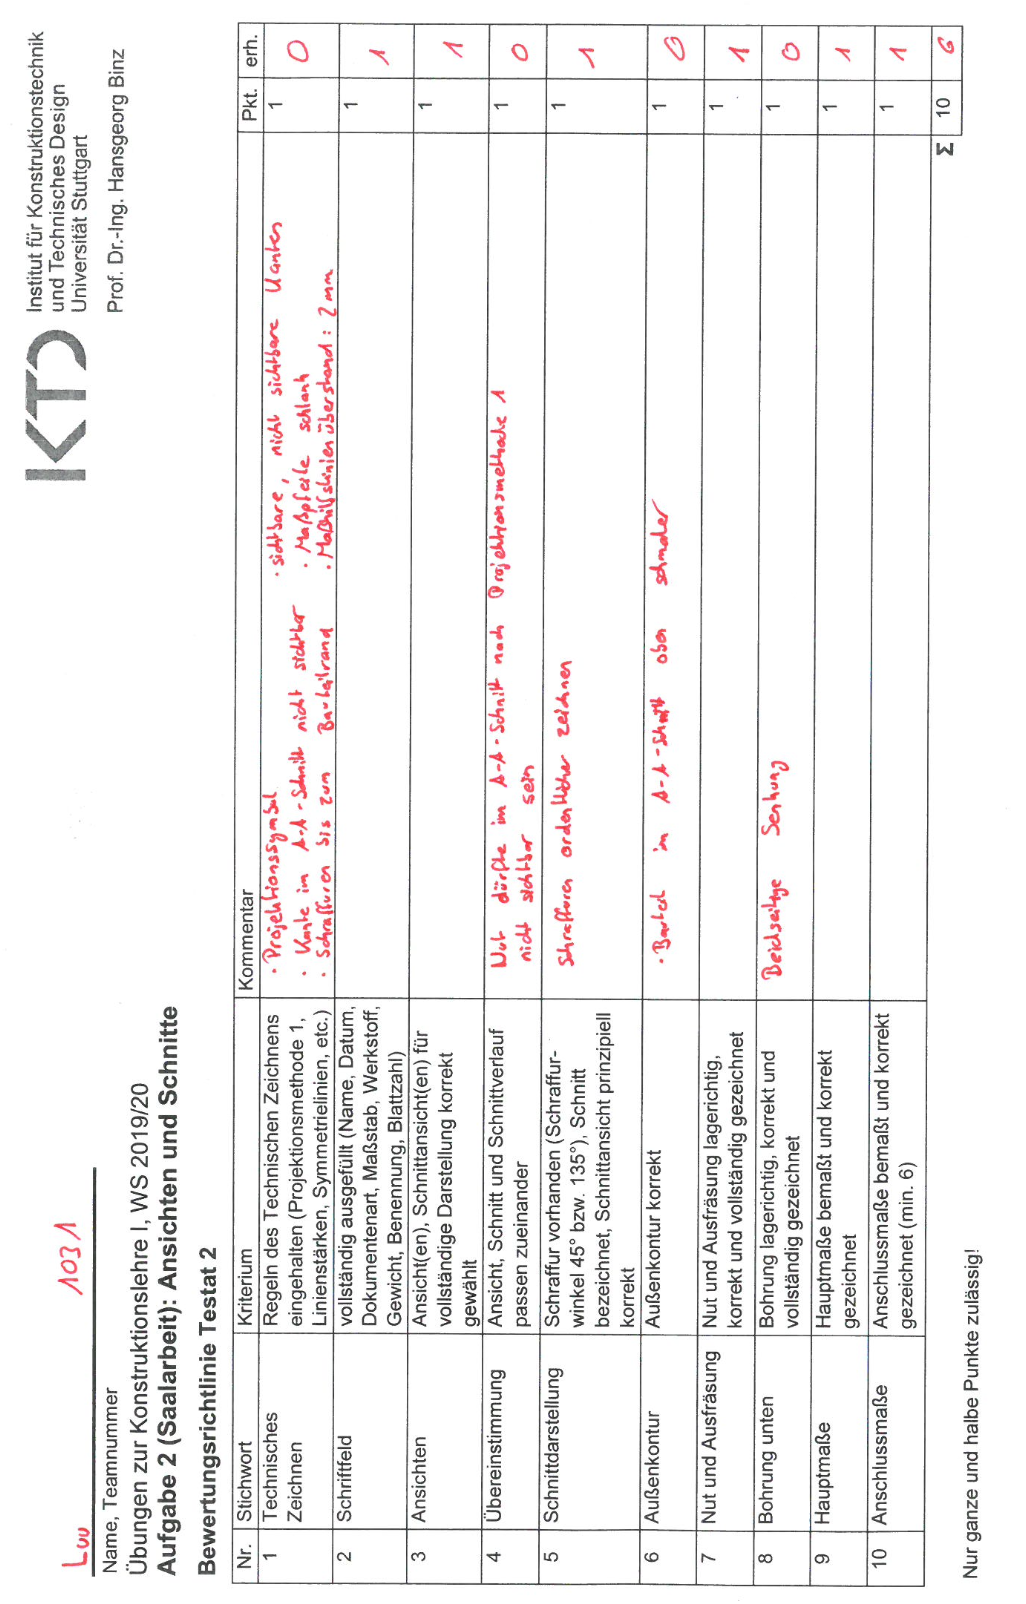 Luu 1031
Name, Teamnummer
KTD
Institut für Konstruktionstechnik
und Technisches Design
Universität Stuttgart
Prof. Dr.-Ing. Hansgeorg Binz
Übungen zur Konstruktionslehre I, WS 2019/20
Aufgabe 2 (Saalarbeit): Ansichten und Schnitte
Bewertungsrichtlinie Testat 2
Nr. Stichwort Kriterium Kommentar Pkt. erh.
1 Technisches
Zeichnen
Regeln des Technischen Zeichnens
eingehalten (Projektionsmethode 1,
Linienstärken, Symmetrielinien, etc.)
· Projektionssymbol
· Kante im A-A-Schnitt nicht sichtbar
· Schraffuren bis zum Bauteilrand
· sichtbare, nicht sichtbare Kanten
· Maßpfeile schlank
· Maßhilfslinienüberstand: 2 mm
1 0
2 Schriftfeld
vollständig ausgefüllt (Name, Datum,
Dokumentenart, Maßstab, Werkstoff,
Gewicht, Benennung, Blattzahl)
1 1
3 Ansichten
Ansicht(en), Schnittansicht(en) für
vollständige Darstellung korrekt
gewählt
1 1
4 Übereinstimmung
Ansicht, Schnitt und Schnittverlauf
passen zueinander
Nut dürfte im A-A-Schnitt nach Projektionsmethode 1
nicht sichtbar sein
1 0
5 Schnittdarstellung
Schraffur vorhanden (Schraffur-
winkel 45° bzw. 135°), Schnitt
bezeichnet, Schnittansicht prinzipiell
korrekt
Schraffuren ordentlicher zeichnen
1 1
6 Außenkontur
Außenkontur korrekt
· Bauteil im A-A-Schnitt oben schmaler
1 0
7 Nut und Ausfräsung
Nut und Ausfräsung lagerichtig,
korrekt und vollständig gezeichnet
1 1
8 Bohrung unten
Bohrung lagerichtig, korrekt und
vollständig gezeichnet
Beidseitige Senkung
1 0
9 Hauptmaße
Hauptmaße bemaßt und korrekt
gezeichnet
1 1
10 Anschlussmaße
Anschlussmaße bemaßt und korrekt
gezeichnet (min. 6)
1 1
Σ 10 6
Nur ganze und halbe Punkte zulässig!